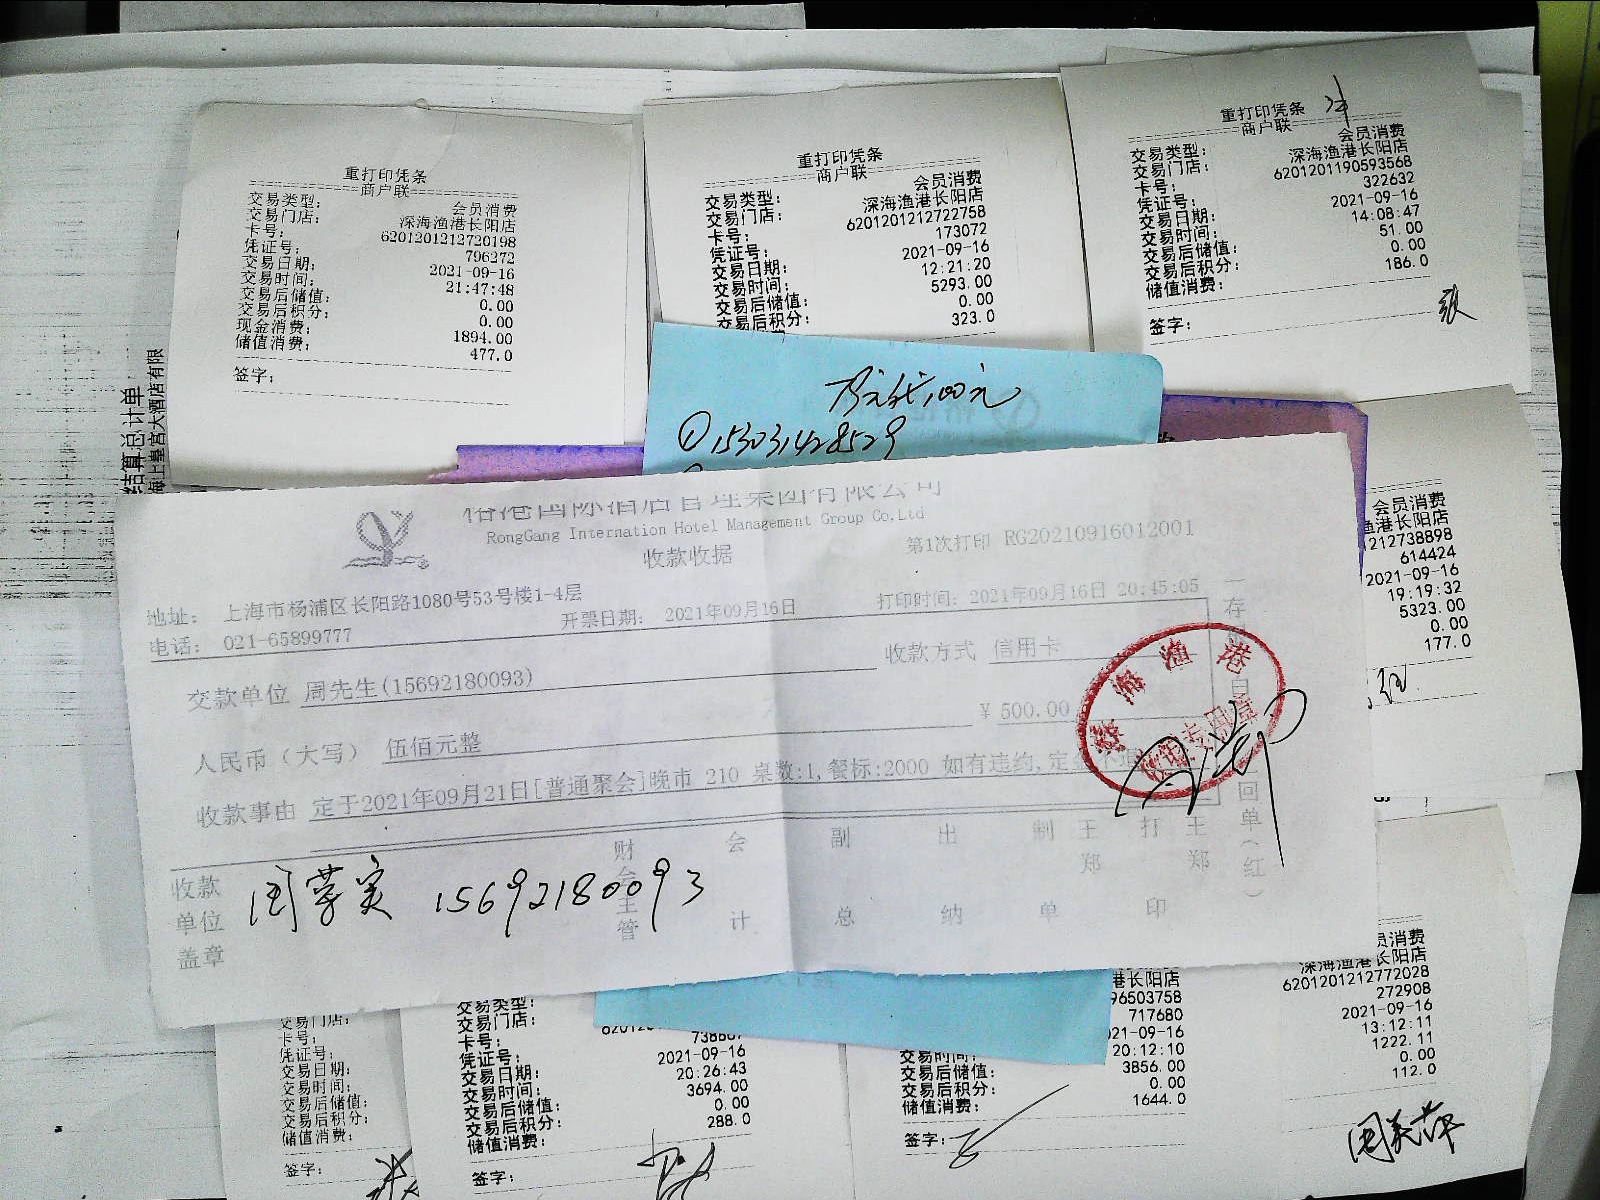 重打印凭条
商户联
交易类型: 会员消费
交易门店: 深海渔港长阳店
卡号: 6201201212720198
凭证号: 796272
交易日期: 2021-09-16
交易时间: 21:47:48
交易后储值: 0.00
交易后积分: 0.00
现金消费: 1894.00
储值消费: 477.0
签字:
重打印凭条
商户联
交易类型: 会员消费
交易门店: 深海渔港长阳店
卡号: 6201201212722758
凭证号: 173072
交易日期: 2021-09-16
交易时间: 12:21:20
交易后储值: 5293.00
交易后积分: 0.00
323.0
重打印凭条
商户联
交易类型: 会员消费
交易门店: 深海渔港长阳店
卡号: 6201201190593568
凭证号: 322632
交易日期: 2021-09-16
交易时间: 14:08:47
交易后储值: 51.00
交易后积分: 0.00
储值消费: 186.0
签字:
结算总计单
海上皇宫大酒店有限
100元
①153031428529
会员消费
渔港长阳店
212738898
614424
2021-09-16
19:19:32
5323.00
0.00
177.0
裕港国际酒店管理集团有限公司
RongGang Internation Hotel Management Group Co,Ltd
收款收据
第1次打印 RG20210916012001
地址: 上海市杨浦区长阳路1080号53号楼1-4层
电话: 021-65899777
开票日期: 2021年09月16日
打印时间: 2021年09月16日 20:45:05
交款单位 周先生(15692180093)
收款方式 信用卡
人民币(大写) 伍佰元整
¥ 500.00
收款事由 定于2021年09月21日[普通聚会]晚市 210 桌数:1,餐标:2000 如有违约,定金不退
深海渔港
收款单位盖章
财会主管
会计
副总
出纳
制单
王郑
打印
王郑
15692180093
交易门店:
卡号:
凭证号:
交易日期:
交易时间:
交易后储值:
交易后积分:
储值消费:
签字:
交易类型:
交易门店:
卡号:
凭证号:
交易日期: 2021-09-16
交易时间: 20:26:43
交易后储值: 3694.00
交易后积分: 0.00
储值消费: 288.0
签字:
港长阳店
96503758
717680
2021-09-16
交易时间: 20:12:10
交易后储值: 3856.00
交易后积分: 0.00
储值消费: 1644.0
签字:
员消费
深海渔港长阳店
6201201212772028
272908
2021-09-16
13:12:11
1222.11
0.00
112.0